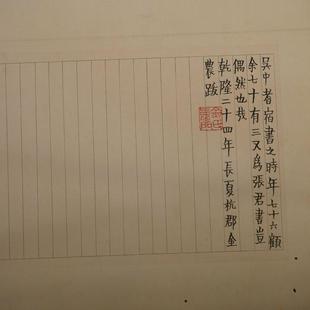 吳中耆宿書之時年七十六顧
余七十有三又為張君書豈
偶然也哉
乾隆二十四年長夏杭郡金
農跋